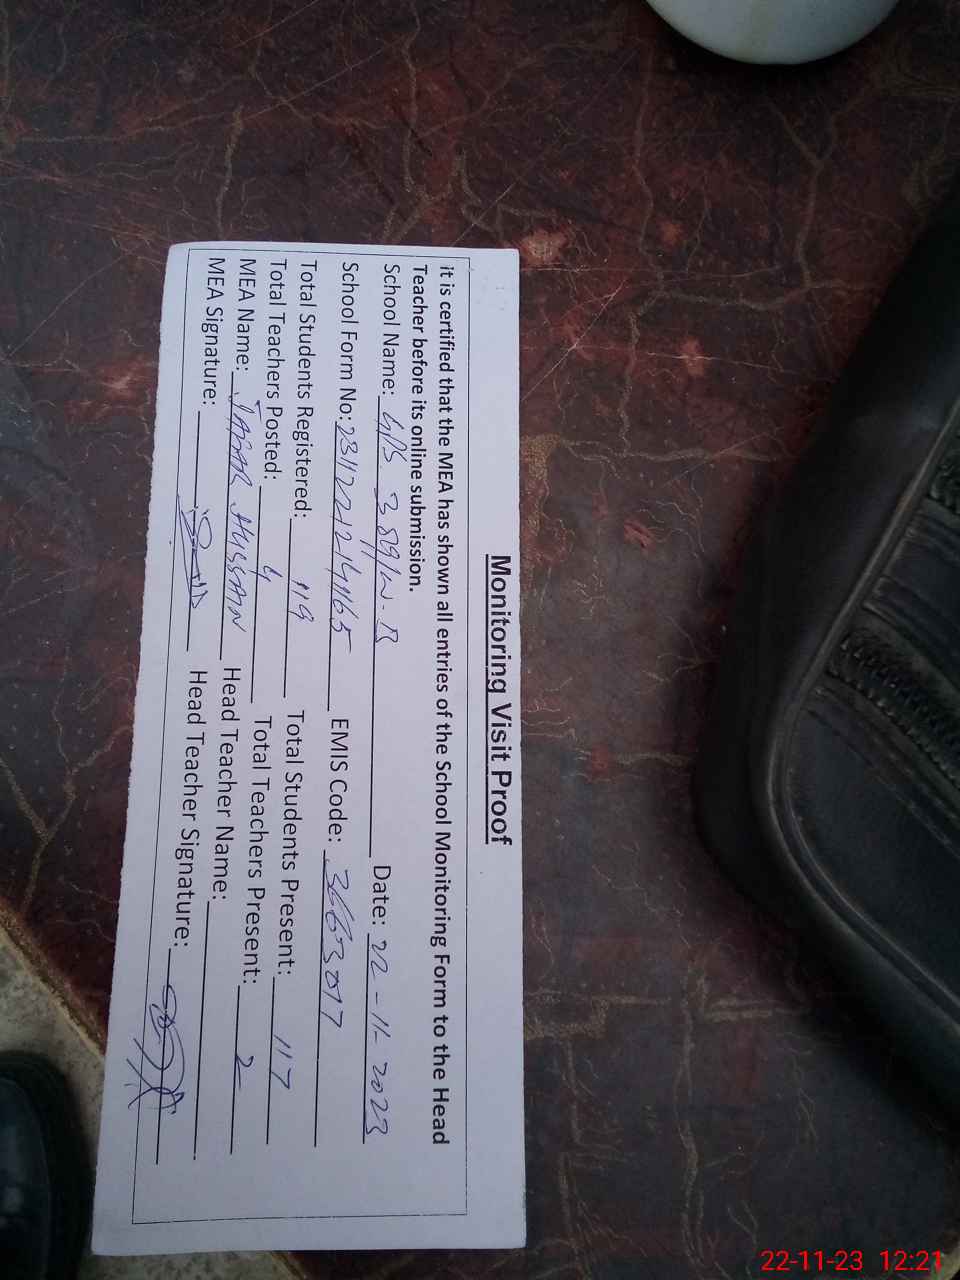 Monitoring Visit Proof
it is certified that the MEA has shown all entries of the School Monitoring Form to the Head
Teacher before its online submission.
School Name: GPS 389/W.B Date: 22-11-2023
School Form No: 23112212141165 EMIS Code: 3663077
Total Students Registered: 119 Total Students Present: 117
Total Teachers Posted: 4 Total Teachers Present: 2
MEA Name: JAFAR HUSSAIN Head Teacher Name:
MEA Signature: Head Teacher Signature:
22-11-23 12:21